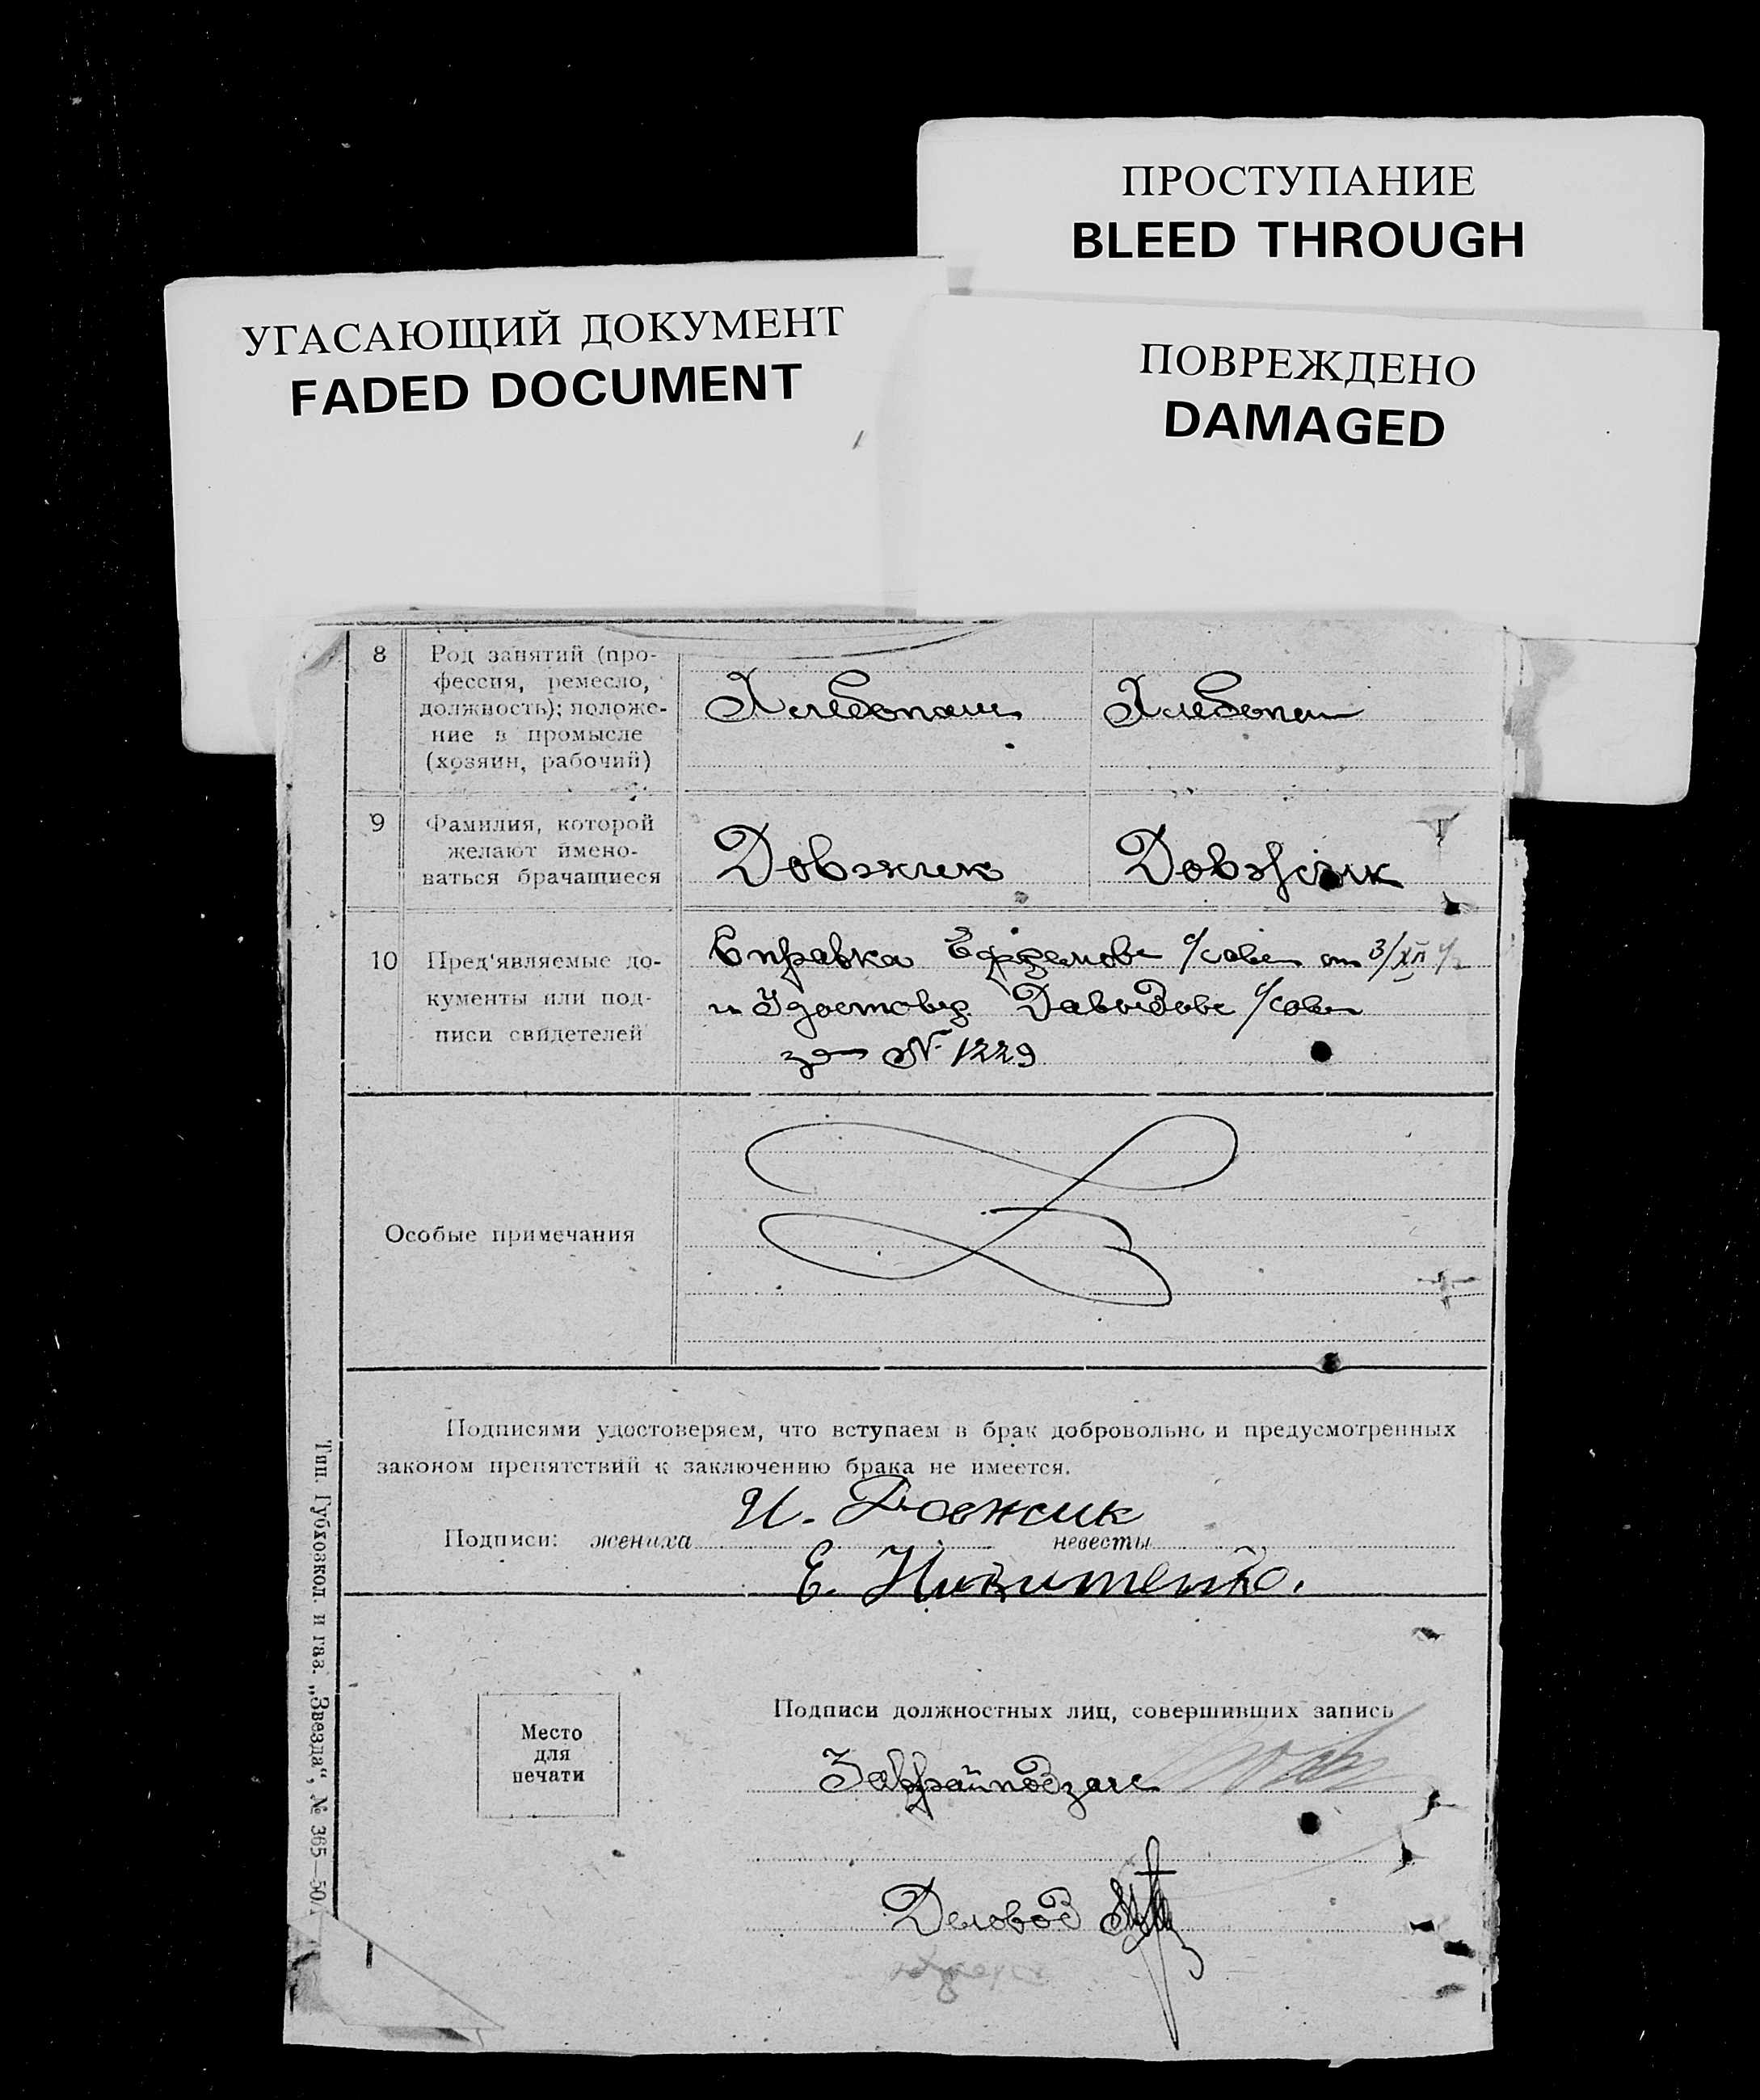 ПРОСТУПАНИЕ
BLEED THROUGH
УГАСАЮЩИЙ ДОКУМЕНТ
FADED DOCUMENT
ПОВРЕЖДЕНО
DAMAGED
8 Род занятий (про-
фессия, ремесло,
должность); положе-
ние в промысле
(хозяин, рабочий)
Хлебопаш Хлебопаш
9 Фамилия, которой
желают имено-
ваться брачащиеся
Довжик Довжик
10 Пред'являемые до-
кументы или под-
писи свидетелей
Справка Ефремовс с/сове от 3/XII
и Удостовер Давыдовс с/сове
за № 1229
Особые примечания
Подписями удостоверяем, что вступаем в брак добровольно и предусмотренных
законом препятствий к заключению брака не имеется.
И. Довжик
Подписи: жениха невесты
Е. Никитенко.
Место
для
печати
Подписи должностных лиц, совершивших запись
Заврайподзагс
Деловод
Тип. Губхозкол. и газ. „Звезда“, № 365—50